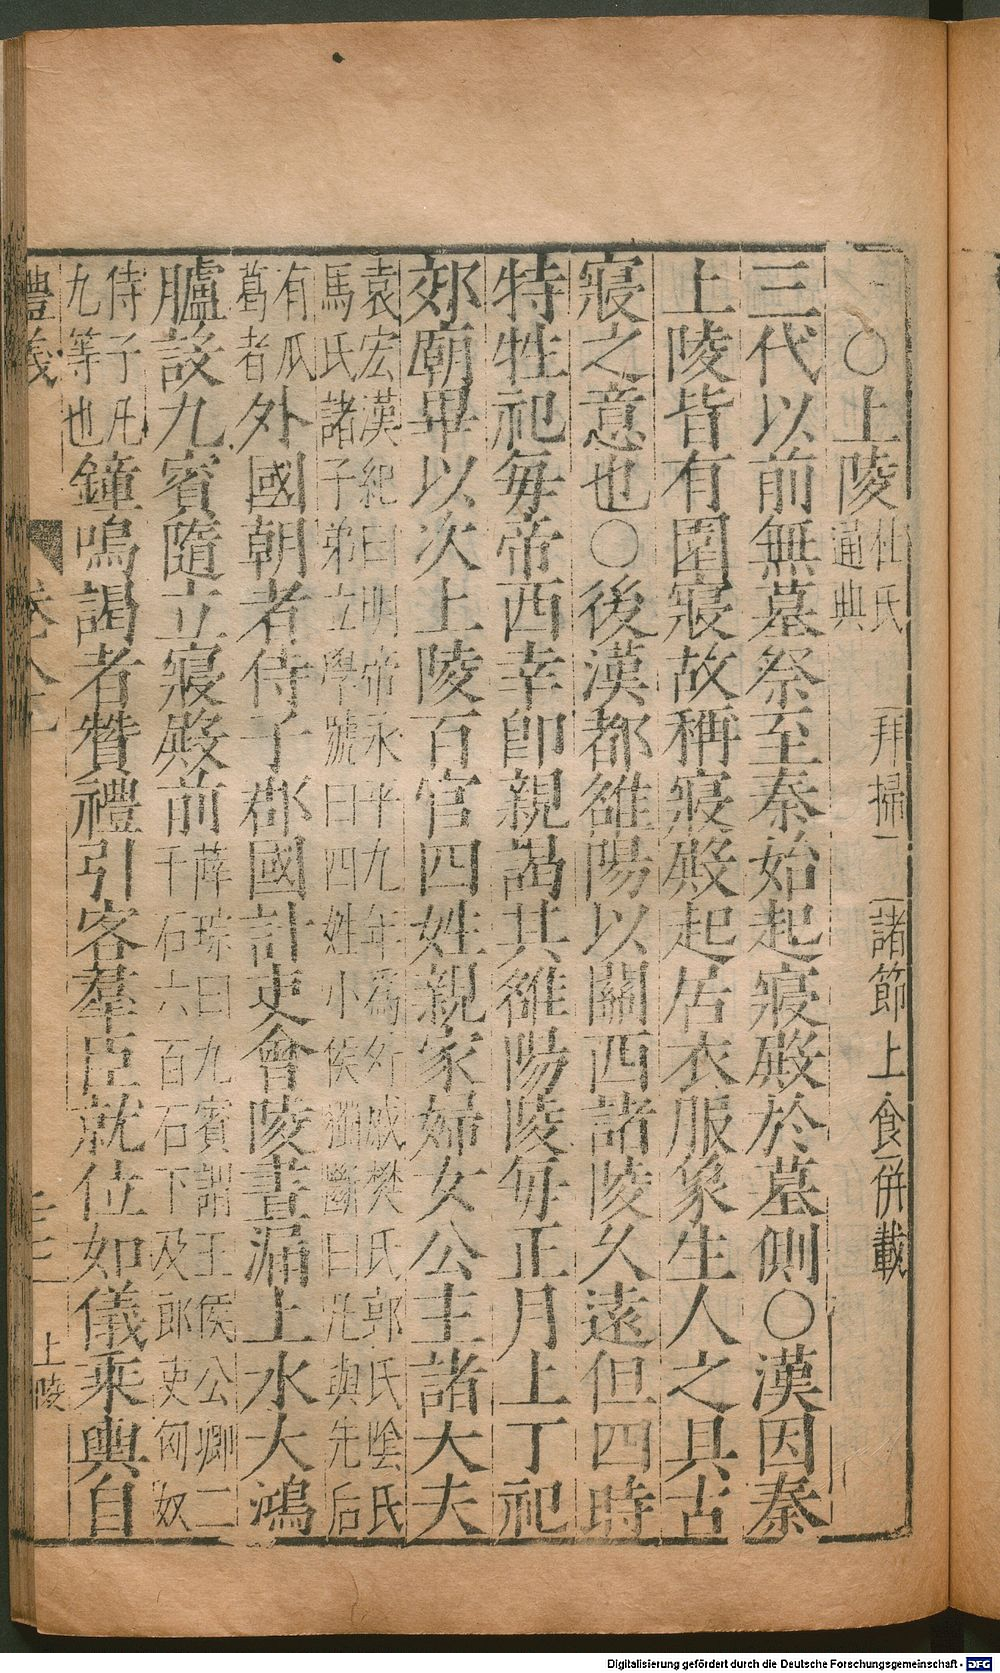 ○上陵杜氏通典 拜掃二 諸節上食併載
三代以前無墓祭至秦始起寢殿於墓側○漢因秦
上陵皆有園寢故稱寢殿起居衣服象生人之具古
寢之意也○後漢都雒陽以關西諸陵久遠但四時
特牲祀每帝西幸即親謁其雒陽陵每正月上丁祀
郊廟畢以次上陵百官四姓親家婦女公主諸大夫
袁宏漢紀曰明帝永平九年爲外戚樊氏郭氏陰氏
馬氏諸子弟立學號曰四姓小侯獨斷曰凡與先后
有瓜葛者外國朝者侍子郡國計吏會陵晝漏上水大鴻
臚設九賓隨立寢殿前薛琮曰九賓謂王侯公卿二千石六百石下及郎吏匈奴
侍子凡九等也鐘鳴謁者贊禮引客羣臣就位如儀乘輿自
禮義 上陵
Digitalisierung gefördert durch die Deutsche Forschungsgemeinschaft - DFG